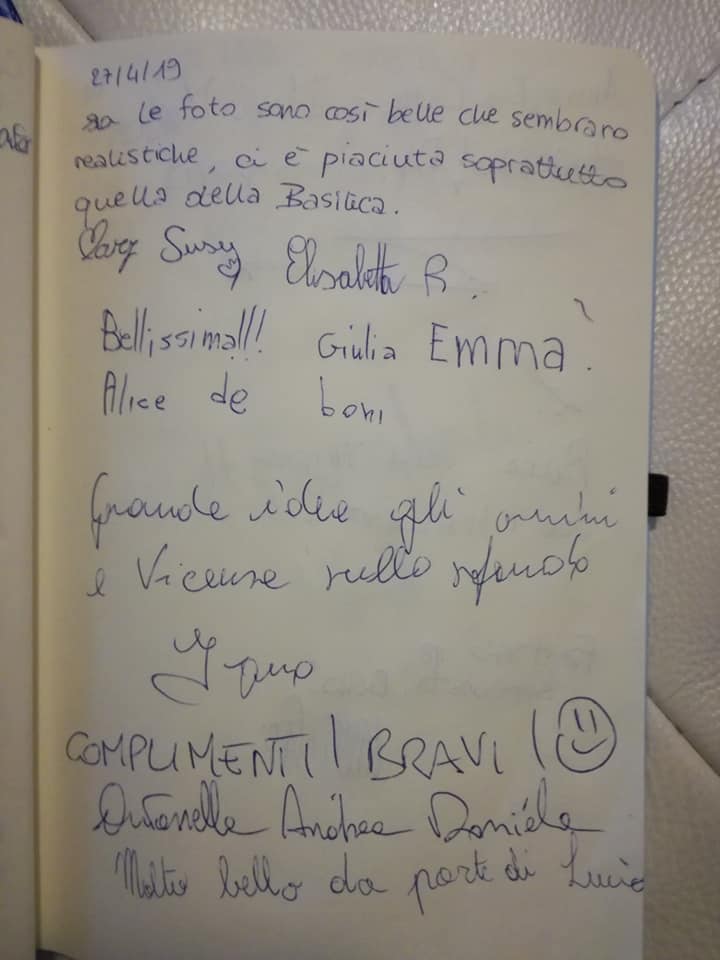 27/4/19
le foto sono così belle che sembrano
realistiche, ci è piaciuta soprattutto
quella della Basilica.
Susy Elisabetta R.
Bellissima!!! Giulia Emma
Alice de boni
Grande idea gli omini
e Vicenza sullo sfondo
COMPLIMENTI! BRAVI!
Antonella Andrea Daniela
Molto bello da parte di Lucio